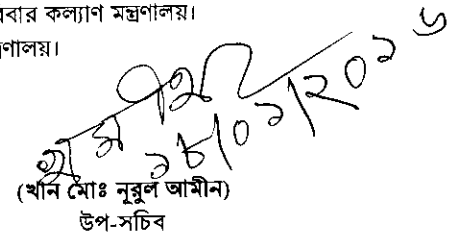 রবার কল্যাণ মন্ত্রণালয়।
ণালয়।
১৮/০১/২০১৬
(খান মোঃ নূরুল আমীন)
উপ-সচিব